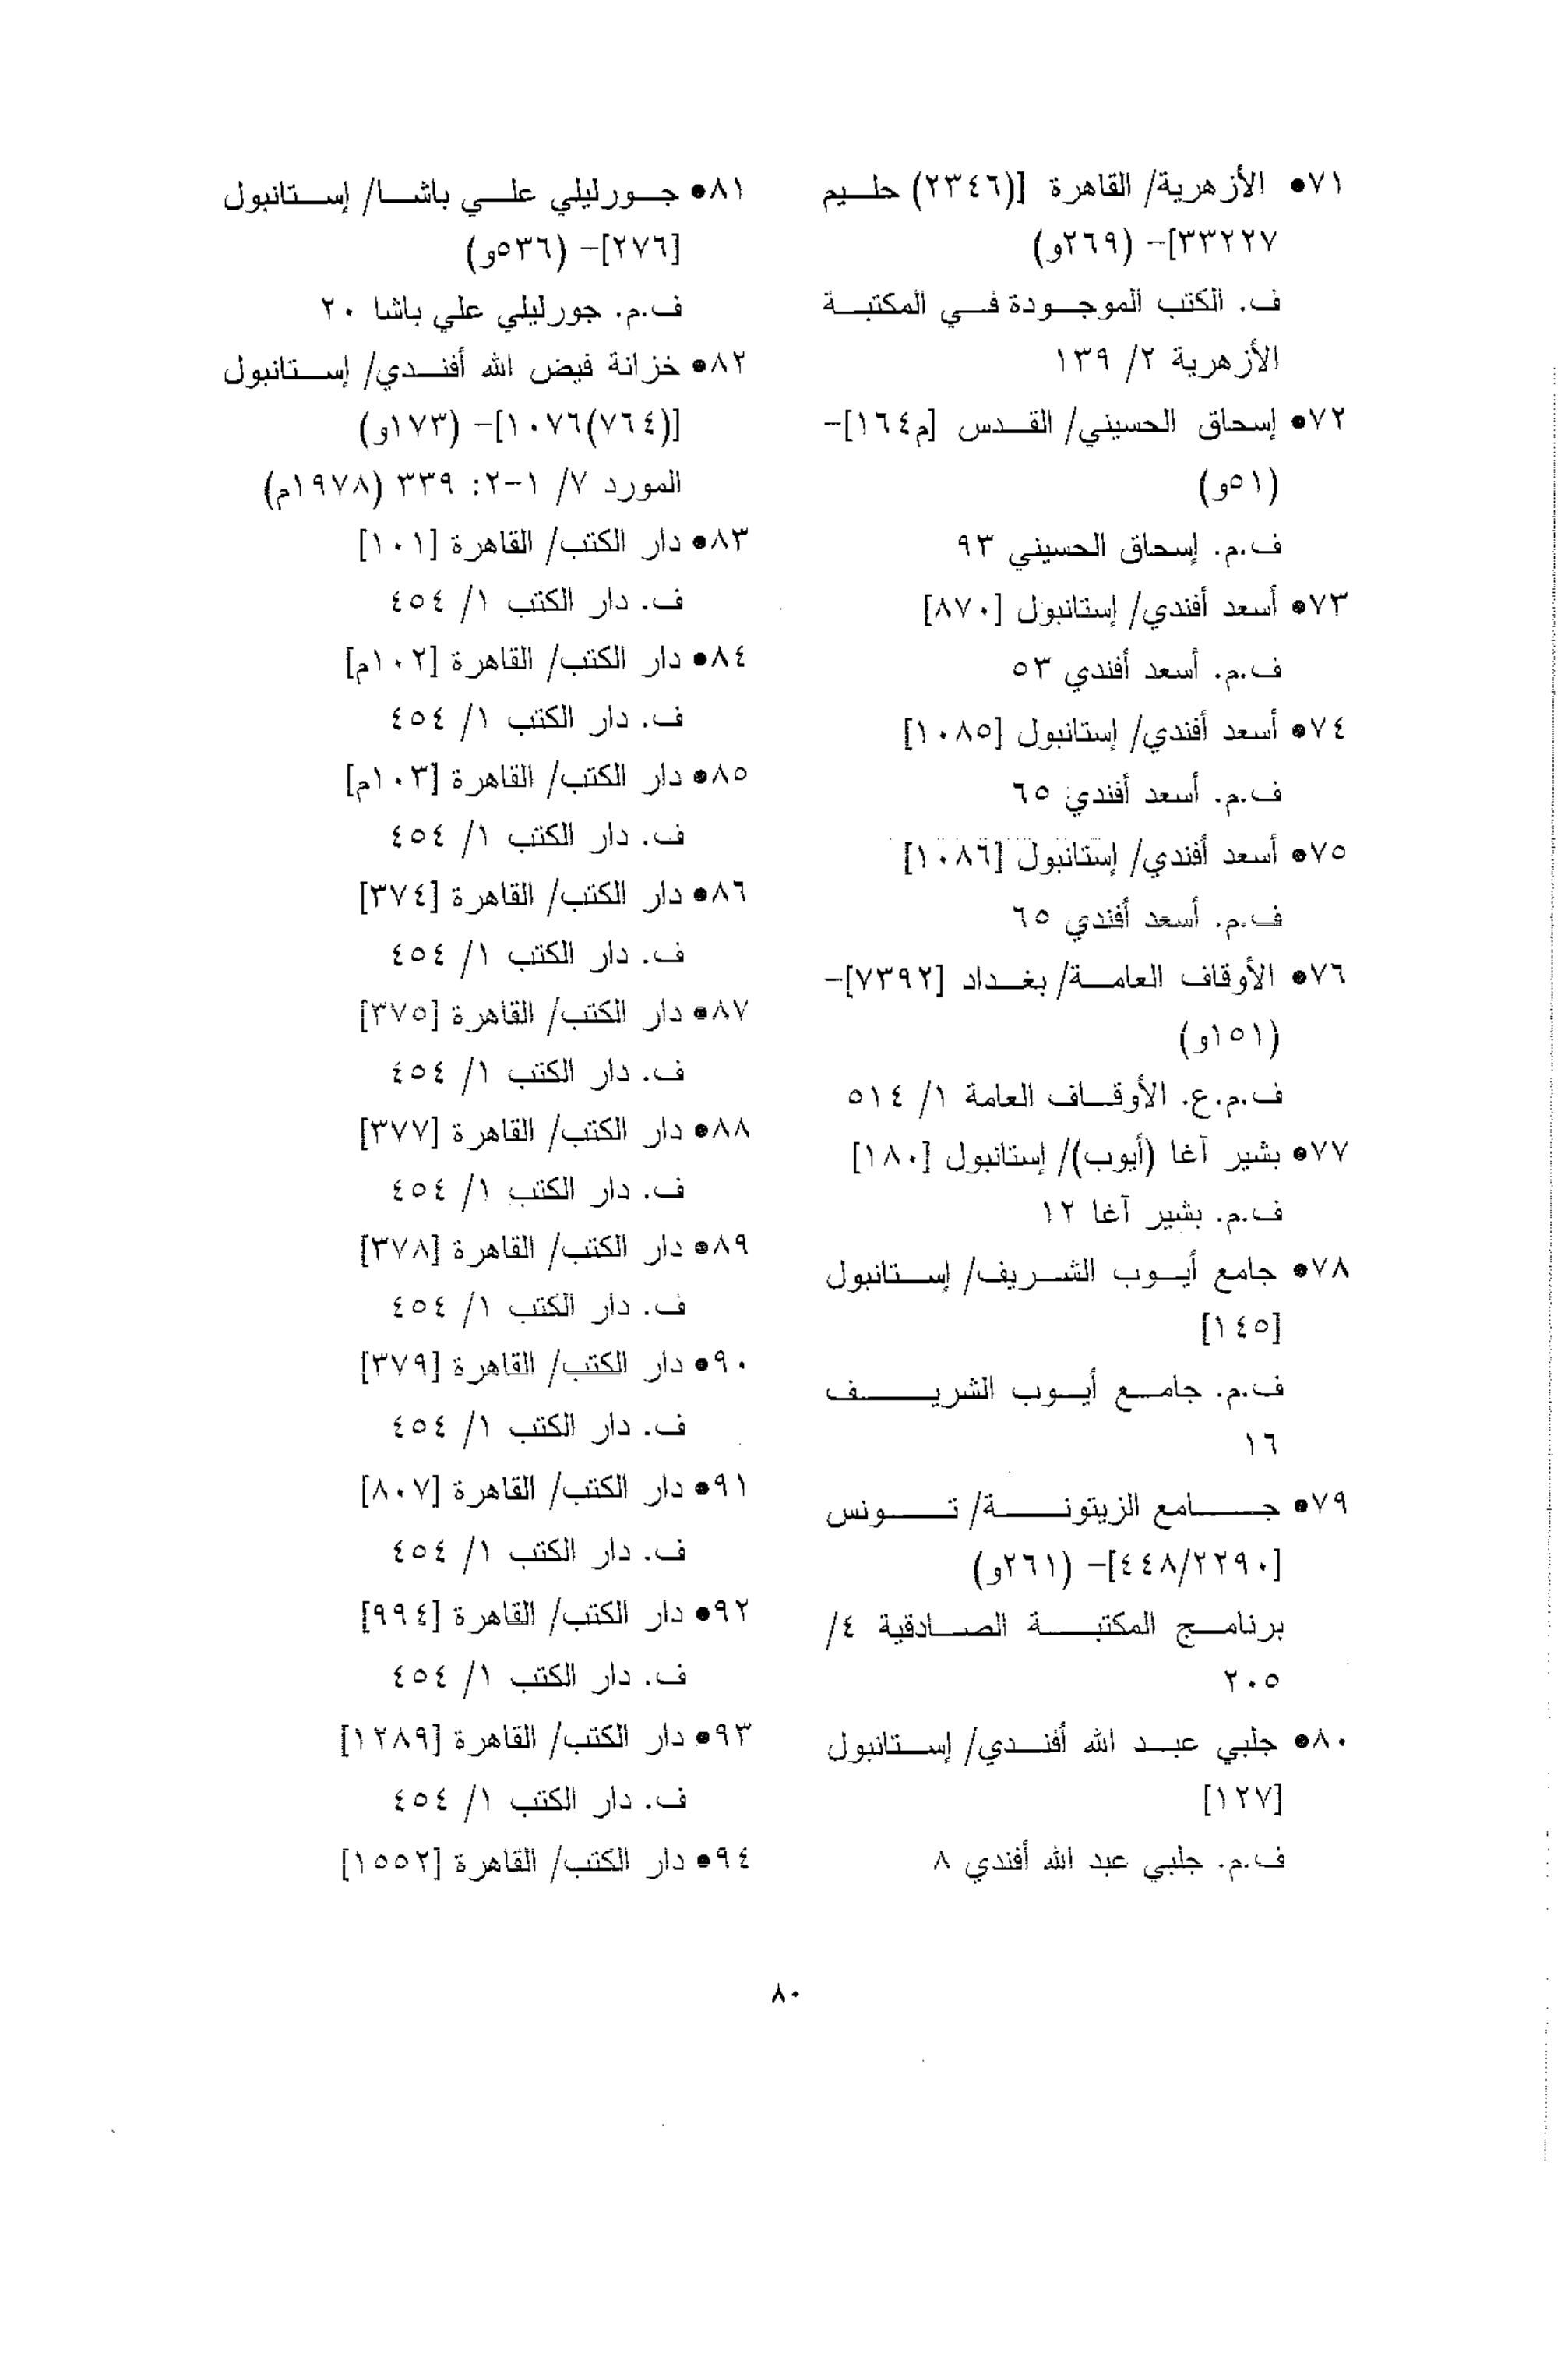 ٧١● الأزهرية/ القاهرة [(٢٣٤٦) حليم
٣٣٢٢٧]– (٢٦٩و)
ف. الكتب الموجودة في المكتبة
الأزهرية ٢/ ١٣٩
٧٢● إسحاق الحسيني/ القدس [م١٦٤]–
(٥١و)
ف.م. إسحاق الحسيني ٩٣
٧٣● أسعد أفندي/ إستانبول [٨٧٠]
ف.م. أسعد أفندي ٥٣
٧٤● أسعد أفندي/ إستانبول [١٠٨٥]
ف.م. أسعد أفندي ٦٥
٧٥● أسعد أفندي/ إستانبول [١٠٨٦]
ف.م. أسعد أفندي ٦٥
٧٦● الأوقاف العامة/ بغداد [٧٣٩٢]–
(١٥١و)
ف.م.ع. الأوقاف العامة ١/ ٥١٤
٧٧● بشير آغا (أيوب)/ إستانبول [١٨٠]
ف.م. بشير آغا ١٢
٧٨● جامع أيوب الشريف/ إستانبول
[١٤٥]
ف.م. جامع أيوب الشريف
١٦
٧٩● جامع الزيتونة/ تونس
[٤٤٨/٢٢٩٠]– (٢٦١و)
برنامج المكتبة الصادقية ٤/
٢٠٥
٨٠● جلبي عبد الله أفندي/ إستانبول
[١٢٧]
ف.م. جلبي عبد الله أفندي ٨
٨١● جورليلي علي باشا/ إستانبول
[٢٧٦]– (٥٣٦و)
ف.م. جورليلي علي باشا ٢٠
٨٢● خزانة فيض الله أفندي/ إستانبول
[(٧٦٤)١٠٧٦]– (١٧٣و)
المورد ٧/ ١–٢: ٣٣٩ (١٩٧٨م)
٨٣● دار الكتب/ القاهرة [١٠١]
ف. دار الكتب ١/ ٤٥٤
٨٤● دار الكتب/ القاهرة [١٠٢م]
ف. دار الكتب ١/ ٤٥٤
٨٥● دار الكتب/ القاهرة [١٠٣م]
ف. دار الكتب ١/ ٤٥٤
٨٦● دار الكتب/ القاهرة [٣٧٤]
ف. دار الكتب ١/ ٤٥٤
٨٧● دار الكتب/ القاهرة [٣٧٥]
ف. دار الكتب ١/ ٤٥٤
٨٨● دار الكتب/ القاهرة [٣٧٧]
ف. دار الكتب ١/ ٤٥٤
٨٩● دار الكتب/ القاهرة [٣٧٨]
ف. دار الكتب ١/ ٤٥٤
٩٠● دار الكتب/ القاهرة [٣٧٩]
ف. دار الكتب ١/ ٤٥٤
٩١● دار الكتب/ القاهرة [٨٠٧]
ف. دار الكتب ١/ ٤٥٤
٩٢● دار الكتب/ القاهرة [٩٩٤]
ف. دار الكتب ١/ ٤٥٤
٩٣● دار الكتب/ القاهرة [١٢٨٩]
ف. دار الكتب ١/ ٤٥٤
٩٤● دار الكتب/ القاهرة [١٥٥٢]
٨٠